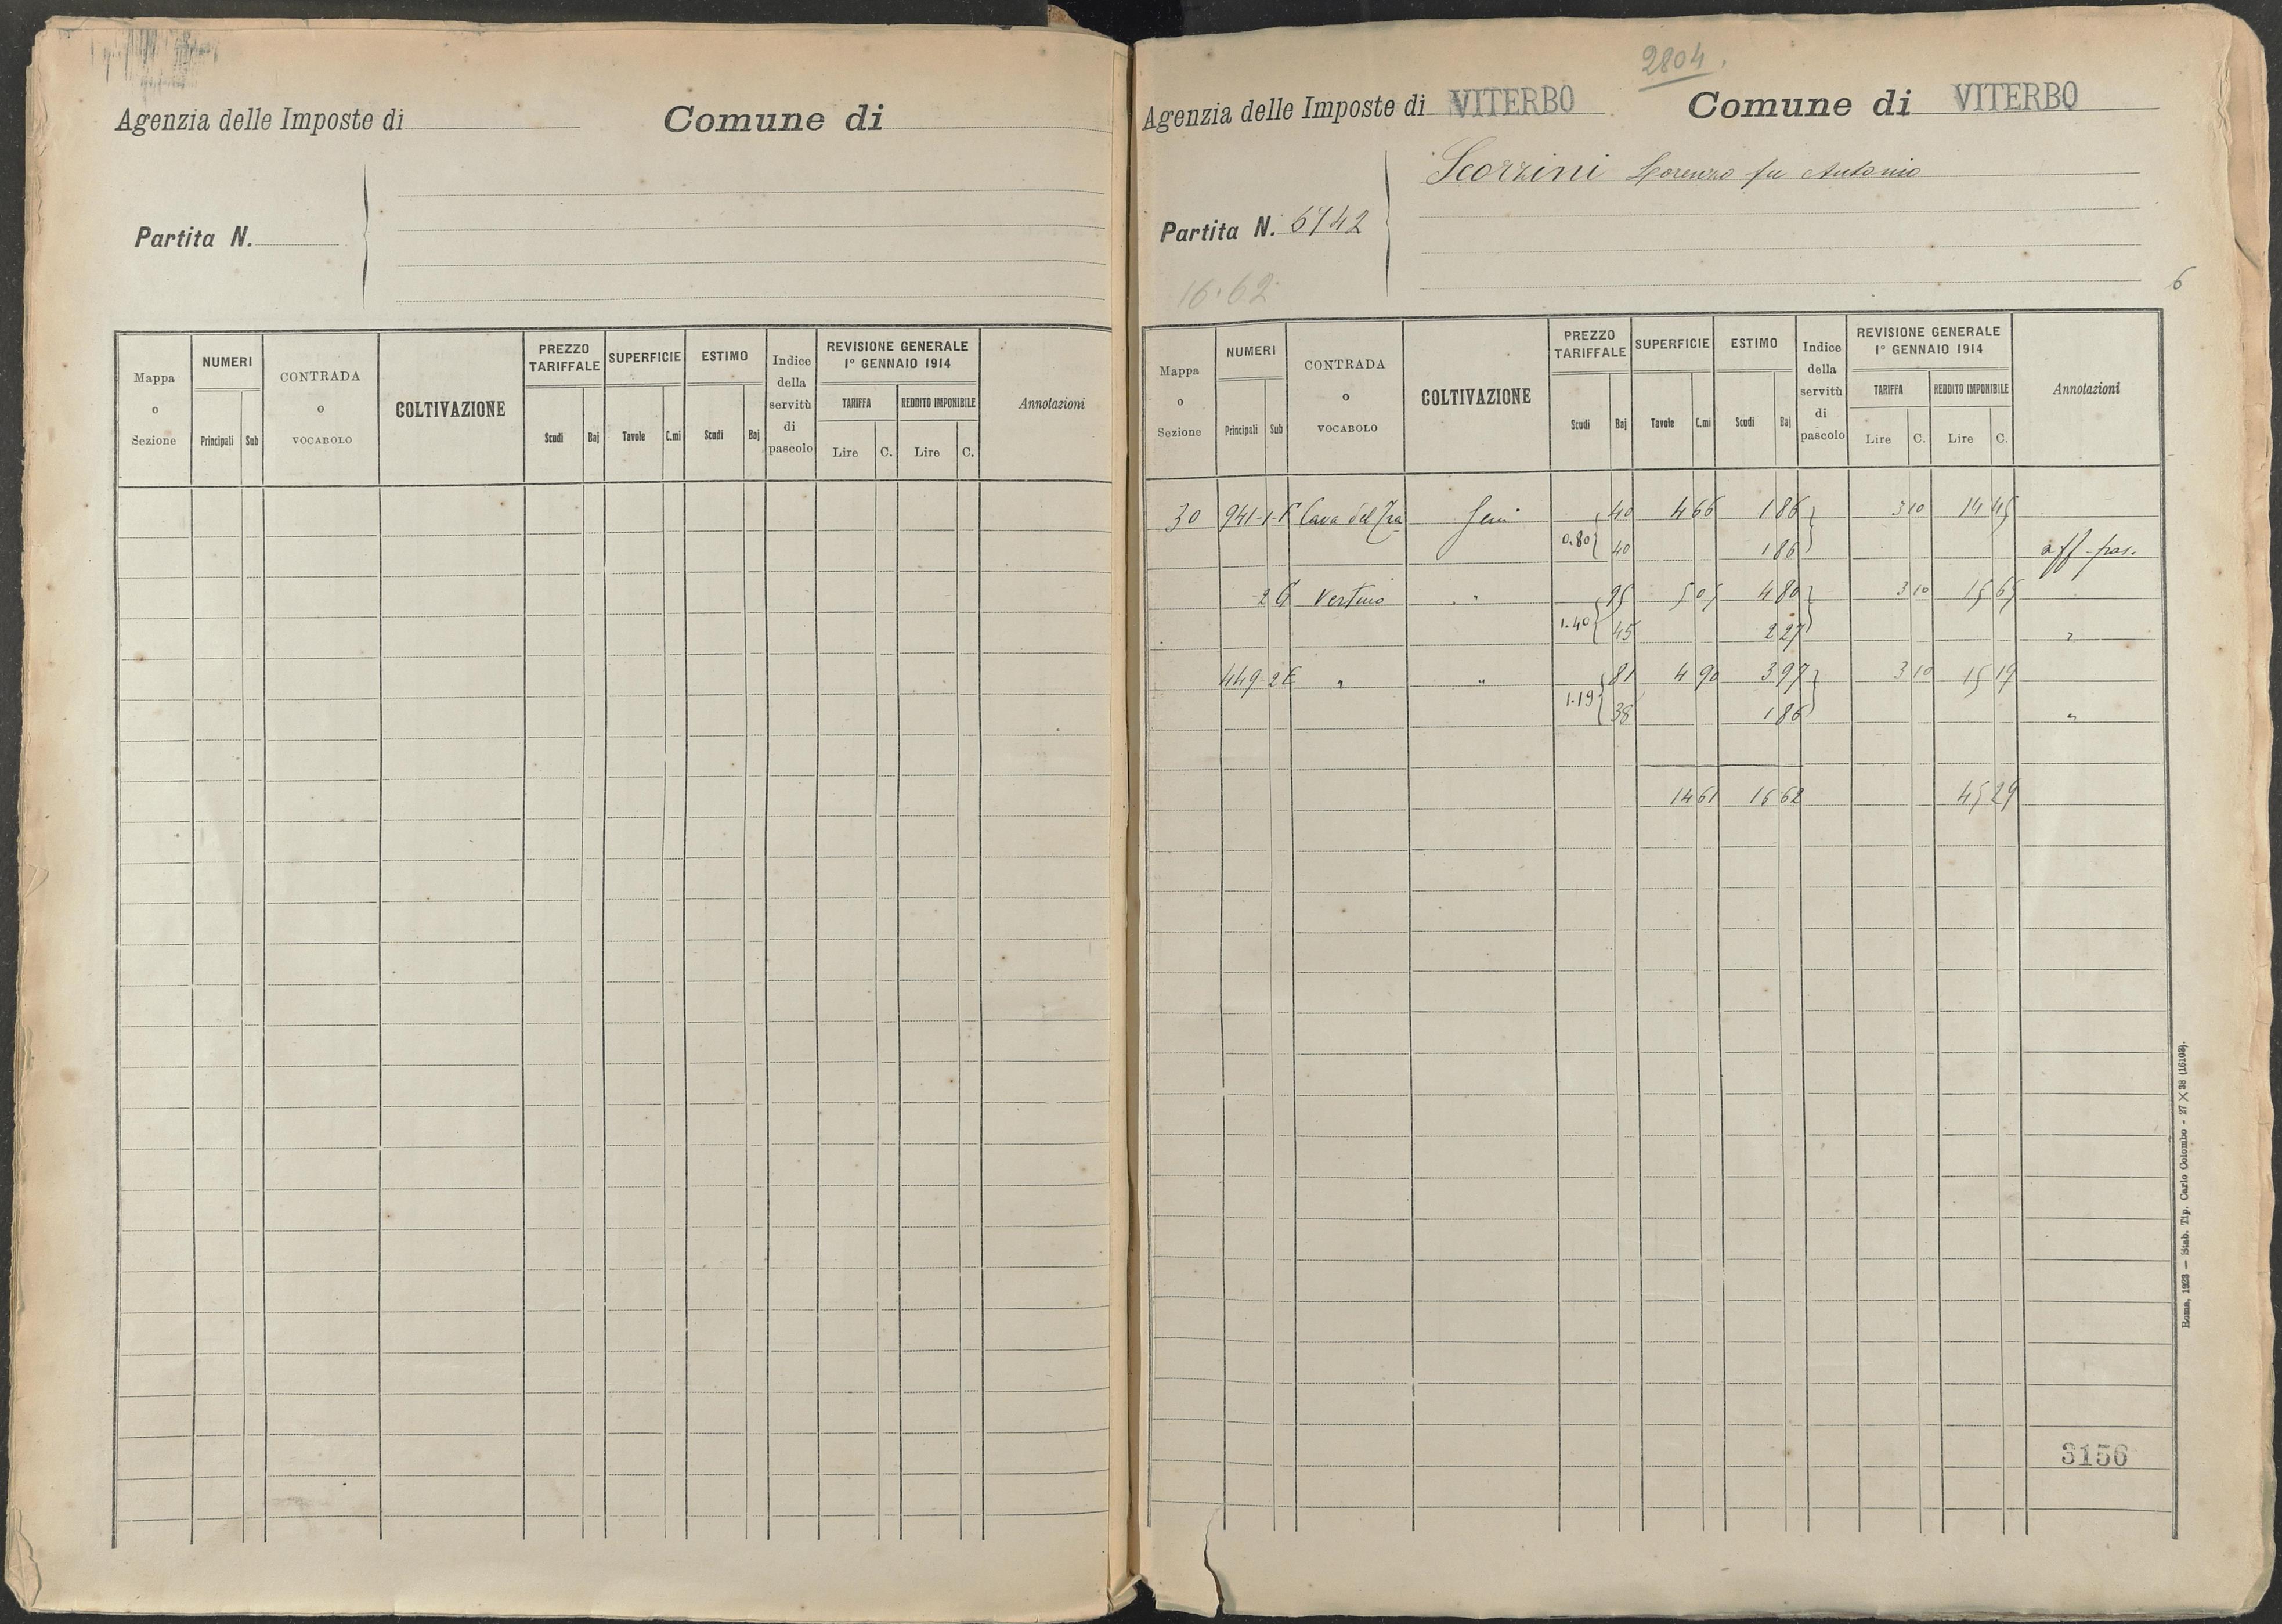 Agenzia delle Imposte di
Comune di
Partita N.
Mappa o Sezione
NUMERI
Principali
Sub
CONTRADA o VOCABOLO
COLTIVAZIONE
PREZZO TARIFFALE
Scudi
Baj
SUPERFICIE
Tavole
C.mi
ESTIMO
Scudi
Baj
Indice della servitù di pascolo
REVISIONE GENERALE
1° GENNAIO 1914
TARIFFA
Lire
C.
REDDITO IMPONIBILE
Lire
C.
Annotazioni
2804.
Agenzia delle Imposte di VITERBO
Comune di VITERBO
Scorzini Lorenzo fu Antonio
Partita N. 6742
16.62
6
Mappa o Sezione
NUMERI
Principali
Sub
CONTRADA o VOCABOLO
COLTIVAZIONE
PREZZO TARIFFALE
Scudi
Baj
SUPERFICIE
Tavole
C.mi
ESTIMO
Scudi
Baj
Indice della servitù di pascolo
REVISIONE GENERALE
1° GENNAIO 1914
TARIFFA
Lire
C.
REDDITO IMPONIBILE
Lire
C.
Annotazioni
30 941-1- Cava del 40 4 66 1 86 3 10 14 45
0.80 40 1 86 aff-pas.
2 Vertino " 95 5 05 4 80 3 10 15 65
1.40 45 2 27 "
449-2 " " 81 4 90 3 97 3 10 15 19
1.19 38 1 86 "
14 61 16 62 45 29
3156
Roma, 1923 — Stab. Tip. Carlo Colombo - 27 X 38 (16103).